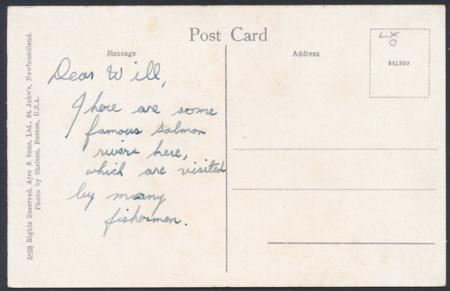 Post Card
Message
Address
LX
0
541800
Dear Will,
There are some
famous salmon
rivers here,
which are visited
by many
fishermen.
Rights Reserved. Ayre & Sons, Ltd., St. John's, Newfoundland.
Photo by Shelton, Boston, U.S.A.